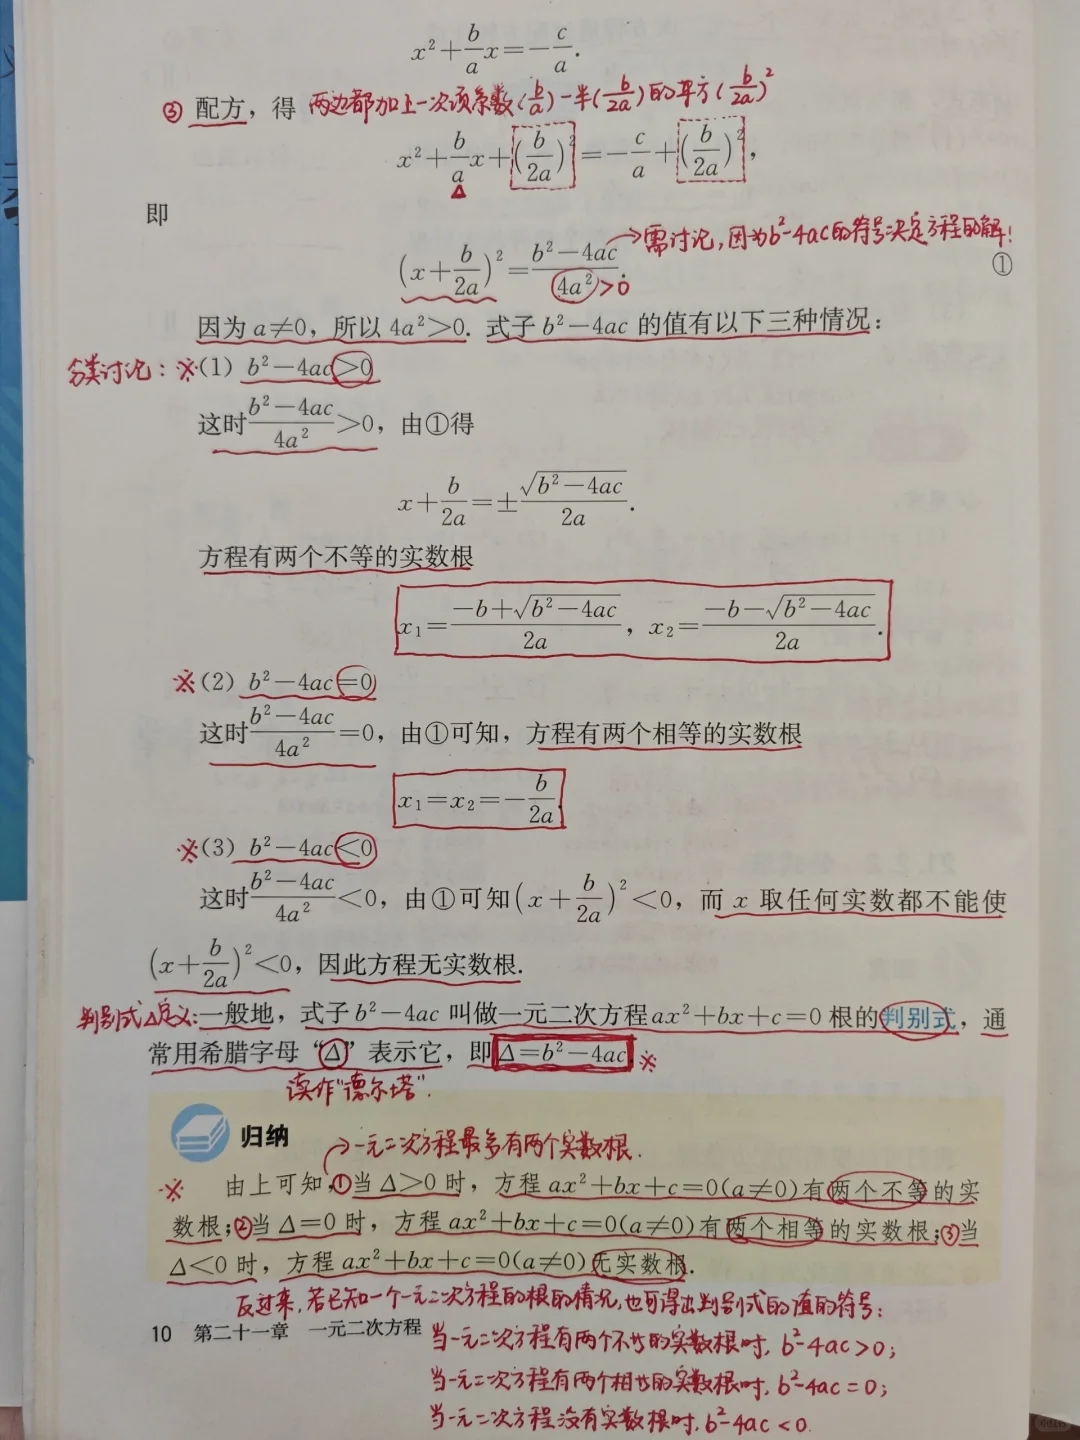 x²+b/a x=-c/a.
③ 配方，得 两边都加上一次项系数(b/a)一半(b/2a)的平方(b/2a)²
x²+b/a x+(b/2a)²=-c/a+(b/2a)²,
△
即
→需讨论，因为b²-4ac的符号决定方程的解！
(x+b/2a)²=(b²-4ac)/4a². ①
>0
因为 a≠0，所以 4a²>0. 式子 b²-4ac 的值有以下三种情况：
分类讨论：※(1) b²-4ac>0
这时(b²-4ac)/4a²>0，由①得
x+b/2a=±√(b²-4ac)/2a.
方程有两个不等的实数根
x₁=(-b+√(b²-4ac))/2a，x₂=(-b-√(b²-4ac))/2a.
※(2) b²-4ac=0
这时(b²-4ac)/4a²=0，由①可知，方程有两个相等的实数根
x₁=x₂=-b/2a.
※(3) b²-4ac<0
这时(b²-4ac)/4a²<0，由①可知(x+b/2a)²<0，而 x 取任何实数都不能使
(x+b/2a)²<0，因此方程无实数根.
判别式△定义：一般地，式子 b²-4ac 叫做一元二次方程ax²+bx+c=0 根的判别式，通
常用希腊字母“Δ”表示它，即Δ=b²-4ac. ※
读作“德尔塔”.
归纳
→一元二次方程最多有两个实数根.
※ 由上可知，①当 Δ>0 时，方程 ax²+bx+c=0(a≠0)有两个不等的实
数根；②当 Δ=0 时，方程 ax²+bx+c=0(a≠0)有两个相等的实数根；③当
Δ<0 时，方程 ax²+bx+c=0(a≠0)无实数根.
反过来，若已知一个一元二次方程的根的情况，也可得出判别式的值的符号：
10 第二十一章 一元二次方程
当一元二次方程有两个不等的实数根时，b²-4ac>0；
当一元二次方程有两个相等的实数根时，b²-4ac=0；
当一元二次方程没有实数根时，b²-4ac<0.